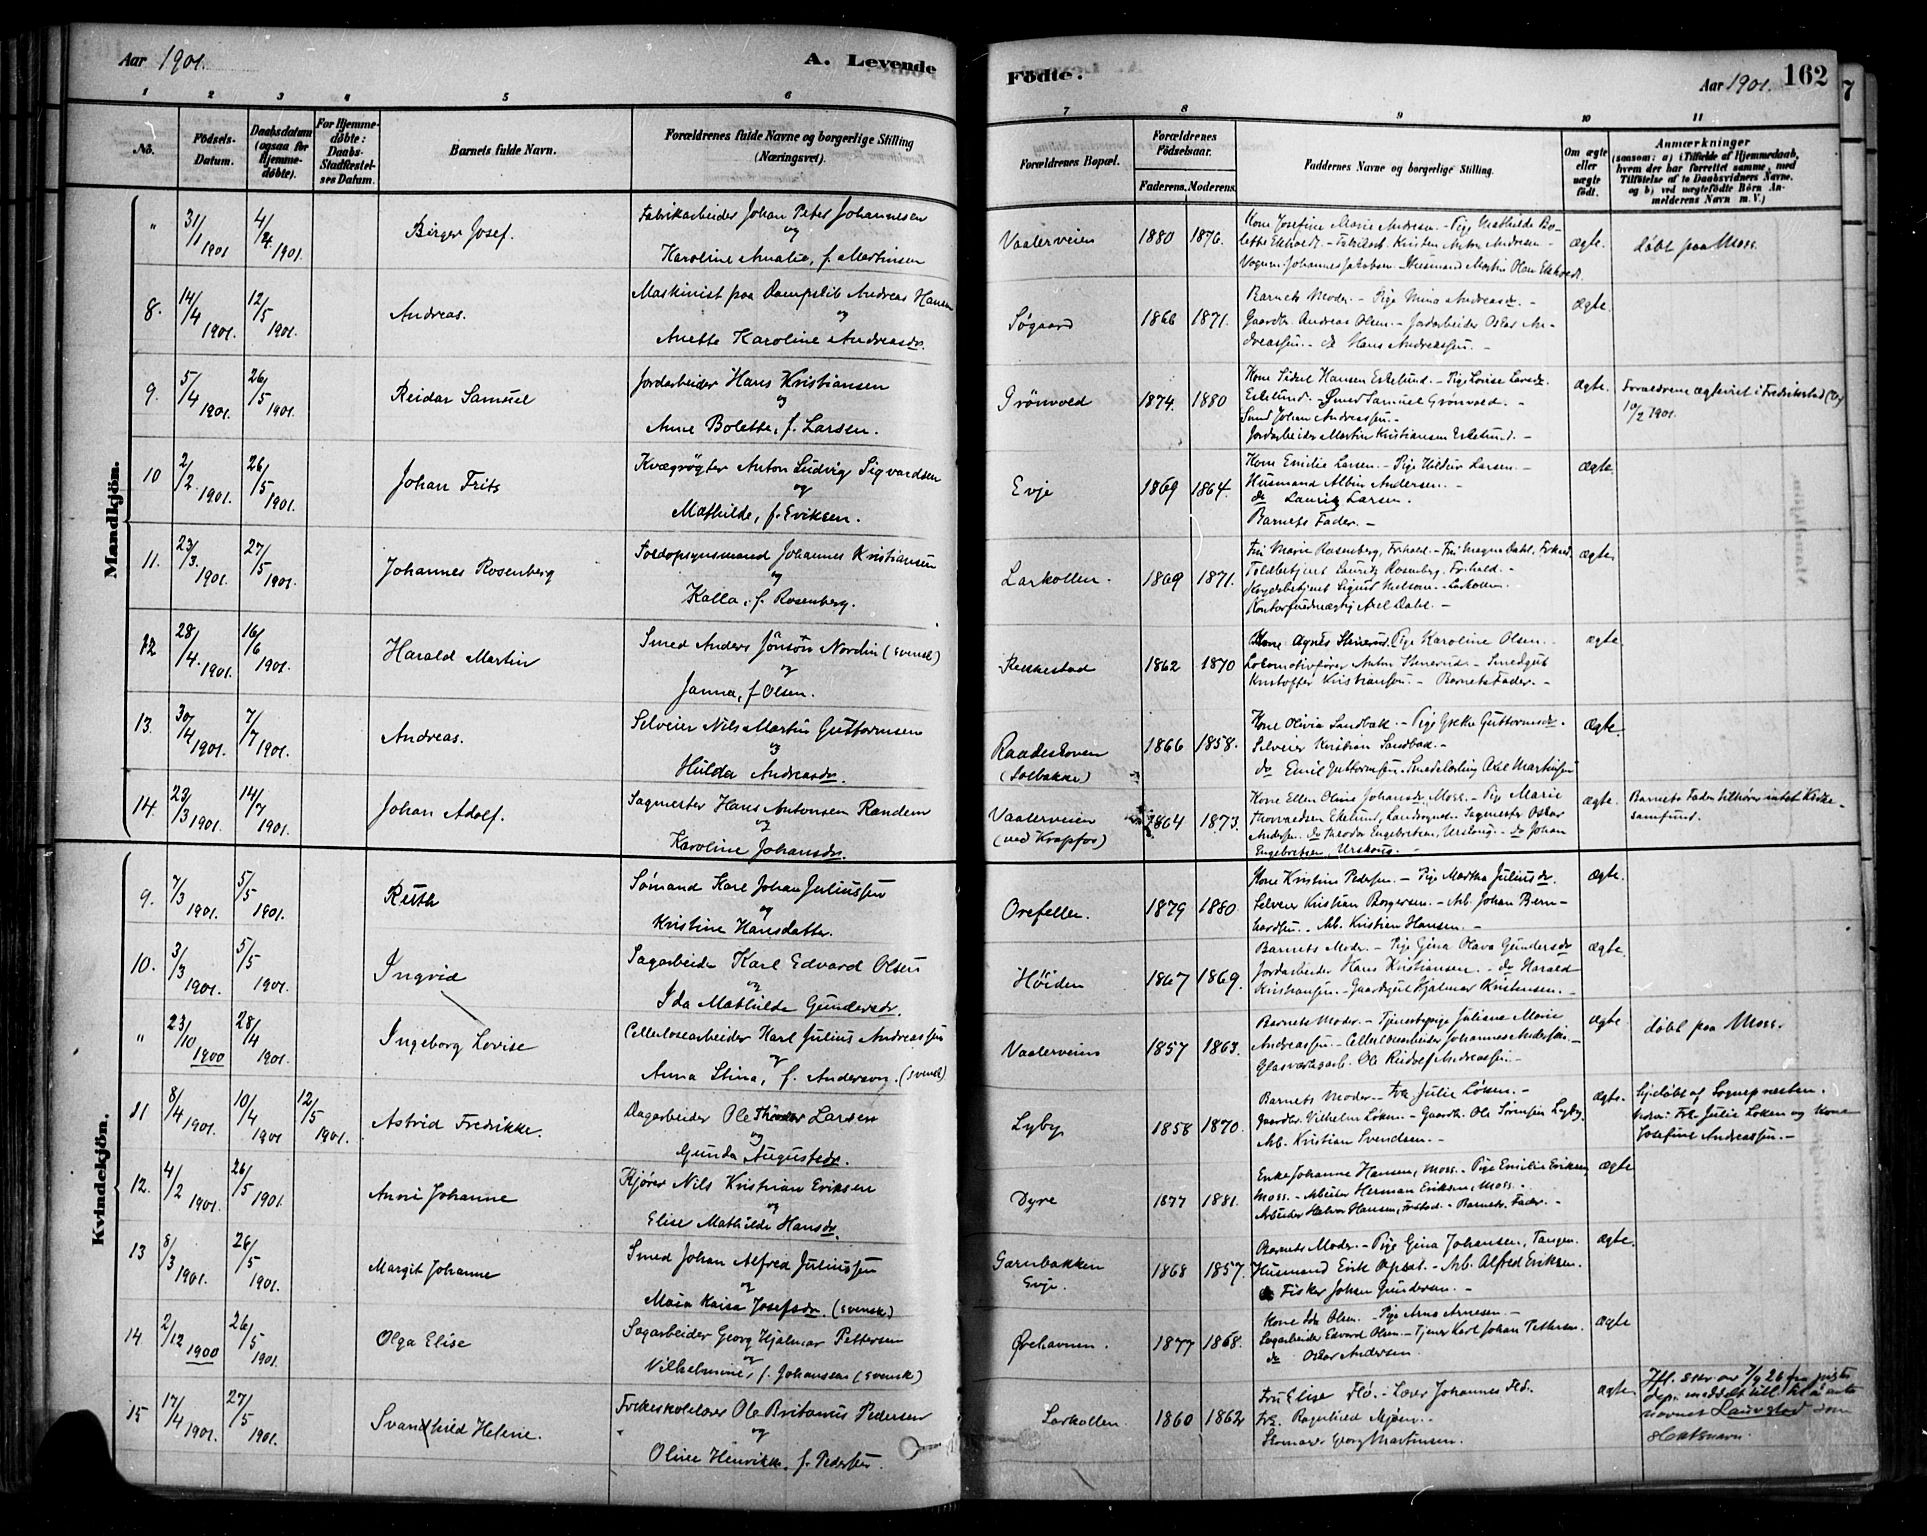 Aar 1901.
A. Levende
Födte.
Aar 1901.
162
1 2 3 4 5 6 7 8 9 10 11
No.
Födsels-Datum.
Daabsdatum (ogsaa for Hjemmedöbte).
For Hjemmedöbte: Daabs-Stadfæstelses Datum.
Barnets fulde Navn.
Forældrenes fulde Navne og borgerlige Stilling (Næringsvei).
Forældrenes Bopæl.
Forældrenes Födselsaar.
Faderens. Moderens.
Faddernes Navne og borgerlige Stilling.
Om ægte eller uægte født.
Anmærkninger
(saasom: a) i Tilfælde af Hjemmedaab, hvem der har forrettet samme, med Tilføielse af to Daabsvidners Navne, og b) ved uægtefødte Børn Anmelderens Navn m. V.)
Mandkjön.
" 31/1 1901 4/4 1901. Birger Josef.
Fabrikarbeider Johan Peter Johannesen
og
Karoline Amalie, f. Martinsen
Vaalerveien 1880 1876.
Kone Josefine Marie Andresen - Pige Mathilde Bo-
lette Ekholdt. - Fabrikarb. Kristen Anton Andresen -
Vognm. Johannes Jakobsen - Husmand Martin Olsen Ekholdt
ægte. döbt paa Moss.
8. 14/4 1901. 12/5 1901. Andreas.
Maskinist paa Dampskib Andreas Hansen
og
Anette Karoline Andreasdr.
Søgaard 1866 1871.
Barnets Moder. - Pige Mina Andreasdr. -
Gaardbr. Andreas Olsen. - Jordarbeider Oskar An-
dreassen. - do Hans Andreassen. -
ægte.
9. 5/4 1901. 26/5 1901. Reidar Samuel
Jordarbeider Hans Kristiansen
og
Anne Bolette, f. Larsen.
Grönvold 1874. 1880
Kone Sidsel Hansen Eskelund. - Pige Lovise Larsdr.
Eskelund. - Smed Samuel Grønvold. -
Smed Johan Andreassen. -
Jordarbeider Martin Kristiansen Eskelund. -
ægte. Forældrene ægteviet i Fredrikstad
10/2 1901.
10 2/2. 1901. 26/5 1901. Johan Frits
Kvægrøgter Anton Ludvig Sigvardsen
og
Mathilde, f. Eriksen.
Evje 1869 1864.
Kone Emilie Larsen. - Pige Hildur Larsen. -
Husmand Albin Andersen. -
do Lauritz Larsen.
Barnets Fader. -
ægte.
11. 23/3. 1901. 27/5 1901. Johannes Rosenberg
Toldopsynsmand Johannes Kristiansen
og
Kalla, f. Rosenberg.
Larkollen. 1869 1871.
Fru Marie Rosenberg, Frhald. - Fru Magna Dahl, Frhald.
Toldbetjent Lauritz Rosenberg, Frhald. -
Krydsbetjent Sigurd Nelson. - Larkollen.
Kontorfuldmægtig Axel Dahl. -
ægte.
12 28/4. 1901. 16/6 1901. Harald Martin
Smed Anders Jönson Nordin (svensk)
og
Janna, f. Olsen.
Rekkestad 1862 1870
Kone Agnes Stenerud. Pige Karoline Olsen. -
Lokomotivfører Anton Stenerud. - Smedgut
Kristoffer Kristiansen. - Barnets Fader. -
ægte
13. 30/4 1901. 7/7 1901. Andreas.
Selveier Nils Martin Guttormsen
og
Hulda Andreasdr.
Raadeskoven
(Solbakke) 1866 1858.
Kone Olivia Sandbæk. - Pige Grethe Guttormsdr.
Selveier Kristian Sandbæk. -
do Emil Guttormsen. Smedelærling Axel Martinsen
ægte
14. 23/3 1901. 14/7 1901. Johan Adolf.
Sagmester Hans Antonsen Randem
og
Karoline Johansdr.
Vaalerveien
(ved Krapfos) 1864 1873.
Kone Ellen Oline Johansdr. Moss. - Pige Marie
Thorvaldsen Ekelund, Landsognet. - Sagmester Oskar
Andersen. do Theodor Engebretsen, Urskoug. - do Johan
Engebretsen, Urskoug. -
ægte. Barnets Fader tilhører intet Kirke-
samfund.
Kvindekjön.
9. 7/3 1901. 5/5 1901. Ruth
Sømand Karl Johan Juliussen
og
Kristine Hansdatter.
Orefellen. 1879 1880.
Kone Kristine Pedersen. - Pige Martha Juliusdr.
Selveier Kristian Borgersen. - Arb. Johan Bern-
hardsen. - Arb. Kristian Hansen. -
ægte.
10. 3/3 1901. 5/5 1901. Ingrid
Sagarbeider Karl Edvard Olsen
og
Ida Mathilde Gundersdr.
Höiden 1867 1869.
Barnets Moder. - Pige Gina Olava Gundersdr.
Jordarbeider Hans Kristiansen. - do Harald
Kristiansen. - Gaardsgut Hjalmar Kristensen. -
ægte.
" 23/10 1900 28/4 1901. Ingeborg Lovise
Cellulosearbeider Karl Julius Andreassen
og
Anna Stina, f. Anderson. (svensk)
Vaalerveien 1857 1863.
Barnets Moder. - Tjenestepige Juliane Marie
Andreassen. - Cellulosearbeider Johannes Andersen. -
Glasværksarb. Ole Rudolf Andreassen. -
ægte döbt paa Moss.
11 8/4 1901. 10/4 1901 12/5 1901. Astrid Fredrikke.
Dagarbeider Ole Theodor Larsen
og
Gunda Augustsdr.
Lyby 1858 1870.
Barnets Moder. - Frk. Julie Løken. -
Gaardbr. Vilhelm Løken. - Gaardbr. Ole Sørensen Lyby.
Arb. Kristian Svendsen. -
ægte. Hjdøbt af Sognepresten.
Vidner: Frk. Julie Løken og Kone
Josefine Andreassen. -
12. 4/2 1901. 26/5 1901. Anni Johanne
Kjører Nils Kristian Eriksen
og
Elise Mathilde Hansdr.
Dyre 1877 1881.
Enke Johanne Hansen, Moss. - Pige Emilie Eriksen
Moss. - Arbeider Herman Eriksen, Moss. -
Arbeider Halvor Hansen, - Barnets Fader. -
ægte
13 8/3 1901. 26/5 1901. Margit Johanne
Smed Johan Alfred Juliussen
og
Maia Kaisa Josefsdr. (svensk)
Garnbakken
Evje. 1868 1857.
Barnets Moder. - Pige Gina Johansen, Tangen.
Husmand Erik Opsal. - Arb. Alfred Eriksen.
Fisker Johan Gundersen. -
ægte.
14 2/12 1900 26/5 1901. Olga Elise
Sagarbeider Georg Hjalmar Pettersen
og
Vilhelmine, f. Johansson (svensk)
Ørehavnen. 1877 1868.
Kone Ida Olsen. - Pige Arna Arnesen. -
Sagarbeider Edvard Olsen. - Tjener Karl Johan Pettersen.
do Oskar Andersen.
ægte
15 17/4 1901. 27/5 1901. Svanhild Helene.
Folkeskolelærer Ole Britanus Pedersen
og
Oline Henrikke, f. Pedersen.
Larkollen. 1860 1862
Fru Elise Flø. - Lærer Johannes Flø.
Frk. Ragnhild Mjøen. -
Skomager Georg Martinsen.
ægte Ifl. skr. av 7/9 26 fra justis
dep. meddelt till. til å anta
navnet Lauvstad som
slektsnavn.